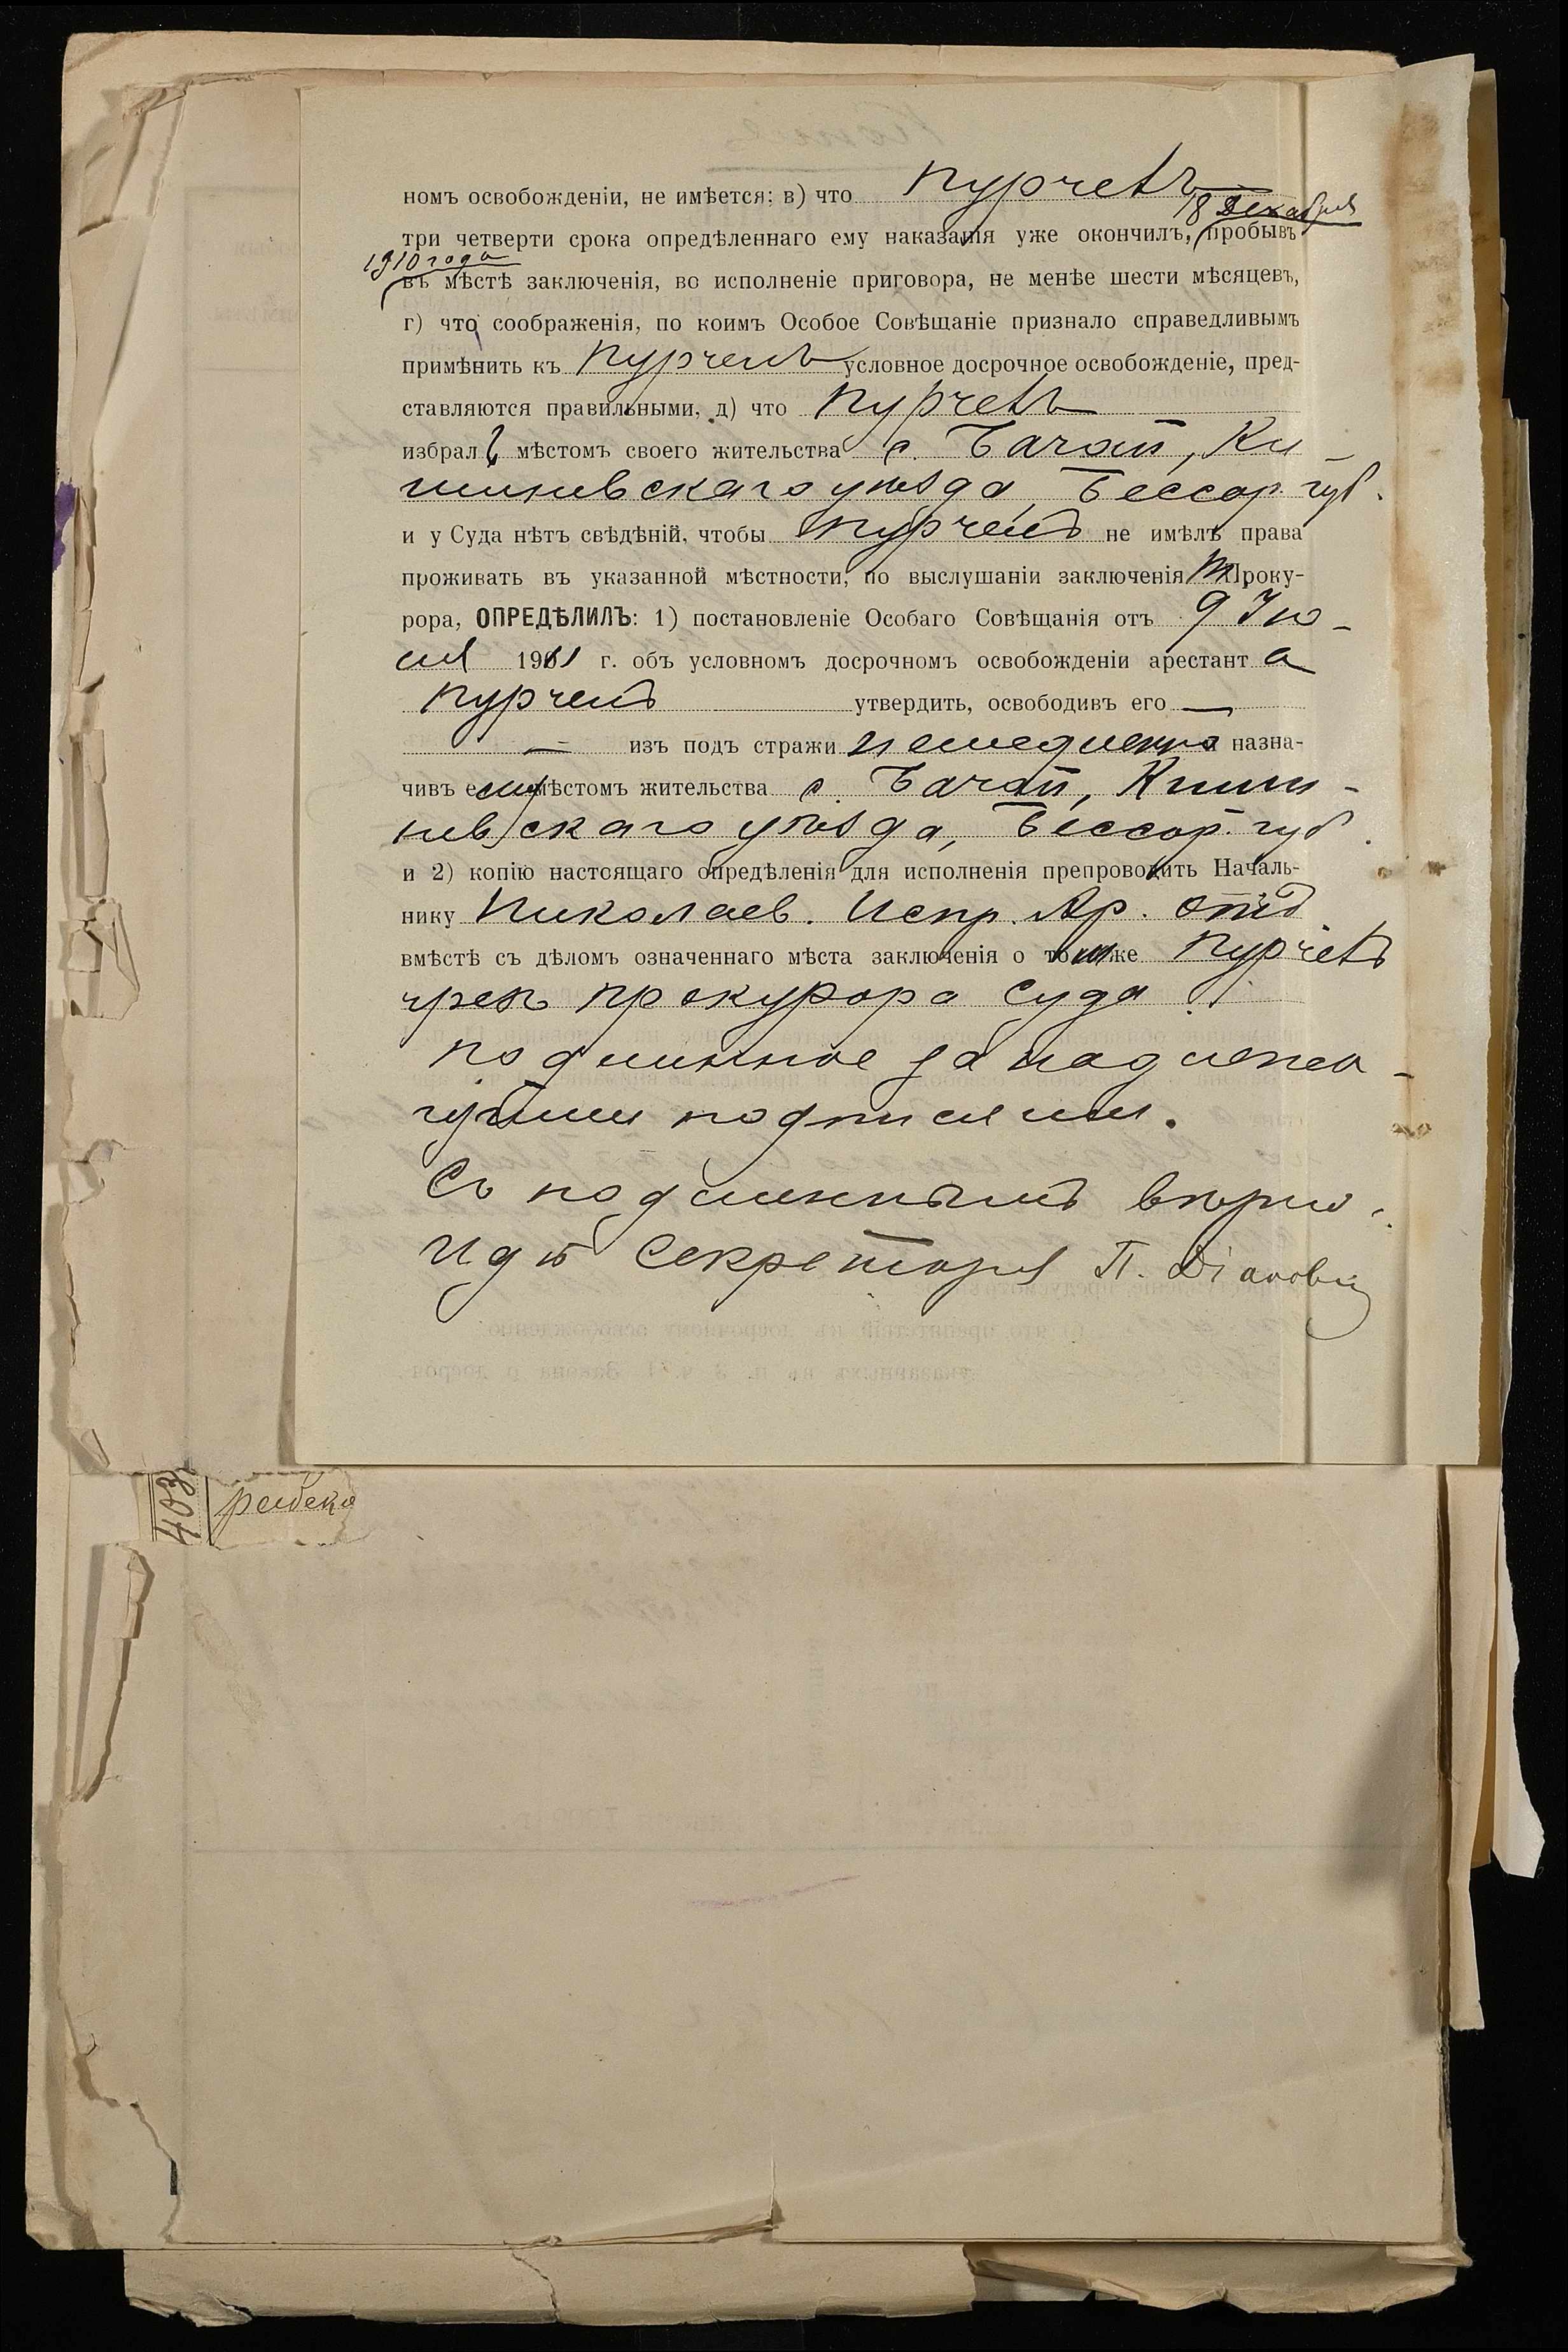 номъ освобожденіи, не имѣется: в) что Пурчелъ
18 Декабря
три четверти срока опредѣленнаго ему наказанія уже окончилъ, пробывъ
1910 года
въ мѣстѣ заключенія, во исполненіе приговора, не менѣе шести мѣсяцевъ,
г) что соображенія, по коимъ Особое Совѣщаніе признало справедливымъ
примѣнить къ Пурчелъ условное досрочное освобожденіе, пред-
ставляются правильными, д) что Пурчелъ
избралъ мѣстомъ своего жительства с. Бачой, Ки-
шиневскаго уѣзда, Бессар. губ.
и у Суда нѣтъ свѣдѣній, чтобы Пурчелъ не имѣлъ права
проживать въ указанной мѣстности, по выслушаніи заключенія Проку-
рора, ОПРЕДѢЛИЛЪ: 1) постановленіе Особаго Совѣщанія отъ 9 Ію-
ля 1911 г. объ условномъ досрочномъ освобожденіи арестанта
Пурчелъ утвердить, освободивъ его —
— изъ подъ стражи немедленно назна-
чивъ ему мѣстомъ жительства с. Бачой, Киши-
невскаго уѣзда, Бессар. губ.
и 2) копію настоящаго опредѣленія для исполненія препроводить Началь-
нику Николаев. Испр. Ар. Отд
вмѣстѣ съ дѣломъ означеннаго мѣста заключенія о томъ же Пурчелъ
чрезъ прокурора суда.
Подлинное за надлежа-
щими подписями.
Съ подлиннымъ вѣрно:
И д Секретаря П.
403